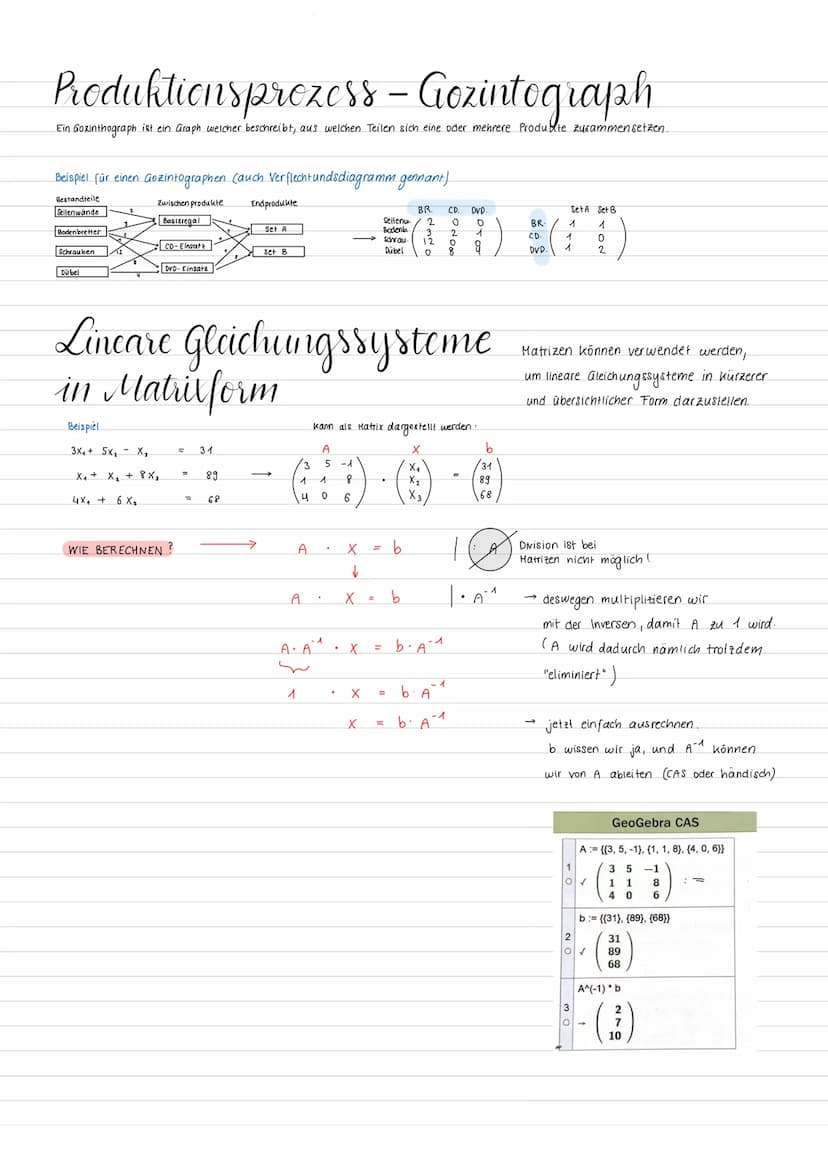 Produktionsprozess – Gozintograph
Ein Gozinthograph ist ein Graph welcher beschreibt, aus welchen Teilen sich eine oder mehrere Produkte zusammensetzen.
Beispiel für einen Gozintographen (auch Verflechtundsdiagramm gennant)
Bestandteile Zwischenprodukte Endprodukte
Seitenwände
Bodenbretter
Schrauben
Dübel
Basisregal
CD-Einsatz
DVD-Einsatz
Set A
Set B
BR. CD. DVD.
Seitenw. 2 0 0
Bodenb. 3 2 1
Schrau. 12 0 0
Dübel 0 8 4
Set A Set B
BR. 1 1
CD. 1 0
DVD. 1 2
Lineare Gleichungssysteme
in Matrixform
Matrizen können verwendet werden,
um lineare Gleichungssysteme in kürzerer
und übersichtlicher Form darzustellen.
Beispiel
kann als Matrix dargestellt werden:
3x₁ + 5x₂ - x₃ = 31
x₁ + x₂ + 8x₃ = 89
4x₁ + 6x₃ = 68
→
A x b
3 5 -1
1 1 8
4 0 6
·
x₁
x₂
x₃
=
31
89
68
WIE BERECHNEN? → A · x = b | : A
Division ist bei
Matrizen nicht möglich!
↓
A · x = b | · A⁻¹
→ deswegen multiplitieren wir
mit der Inversen, damit A zu 1 wird.
(A wird dadurch nämlich trotzdem
"eliminiert")
A · A⁻¹ · x = b · A⁻¹
1 · x = b · A⁻¹
x = b · A⁻¹
→ jetzt einfach ausrechnen.
b wissen wir ja, und A⁻¹ können
wir von A ableiten (CAS oder händisch)
GeoGebra CAS
A := {{3, 5, -1}, {1, 1, 8}, {4, 0, 6}}
1
3 5 −1
1 1 8
4 0 6
:=
b := {{31}, {89}, {68}}
2
31
89
68
A^(-1) * b
3
→
2
7
10